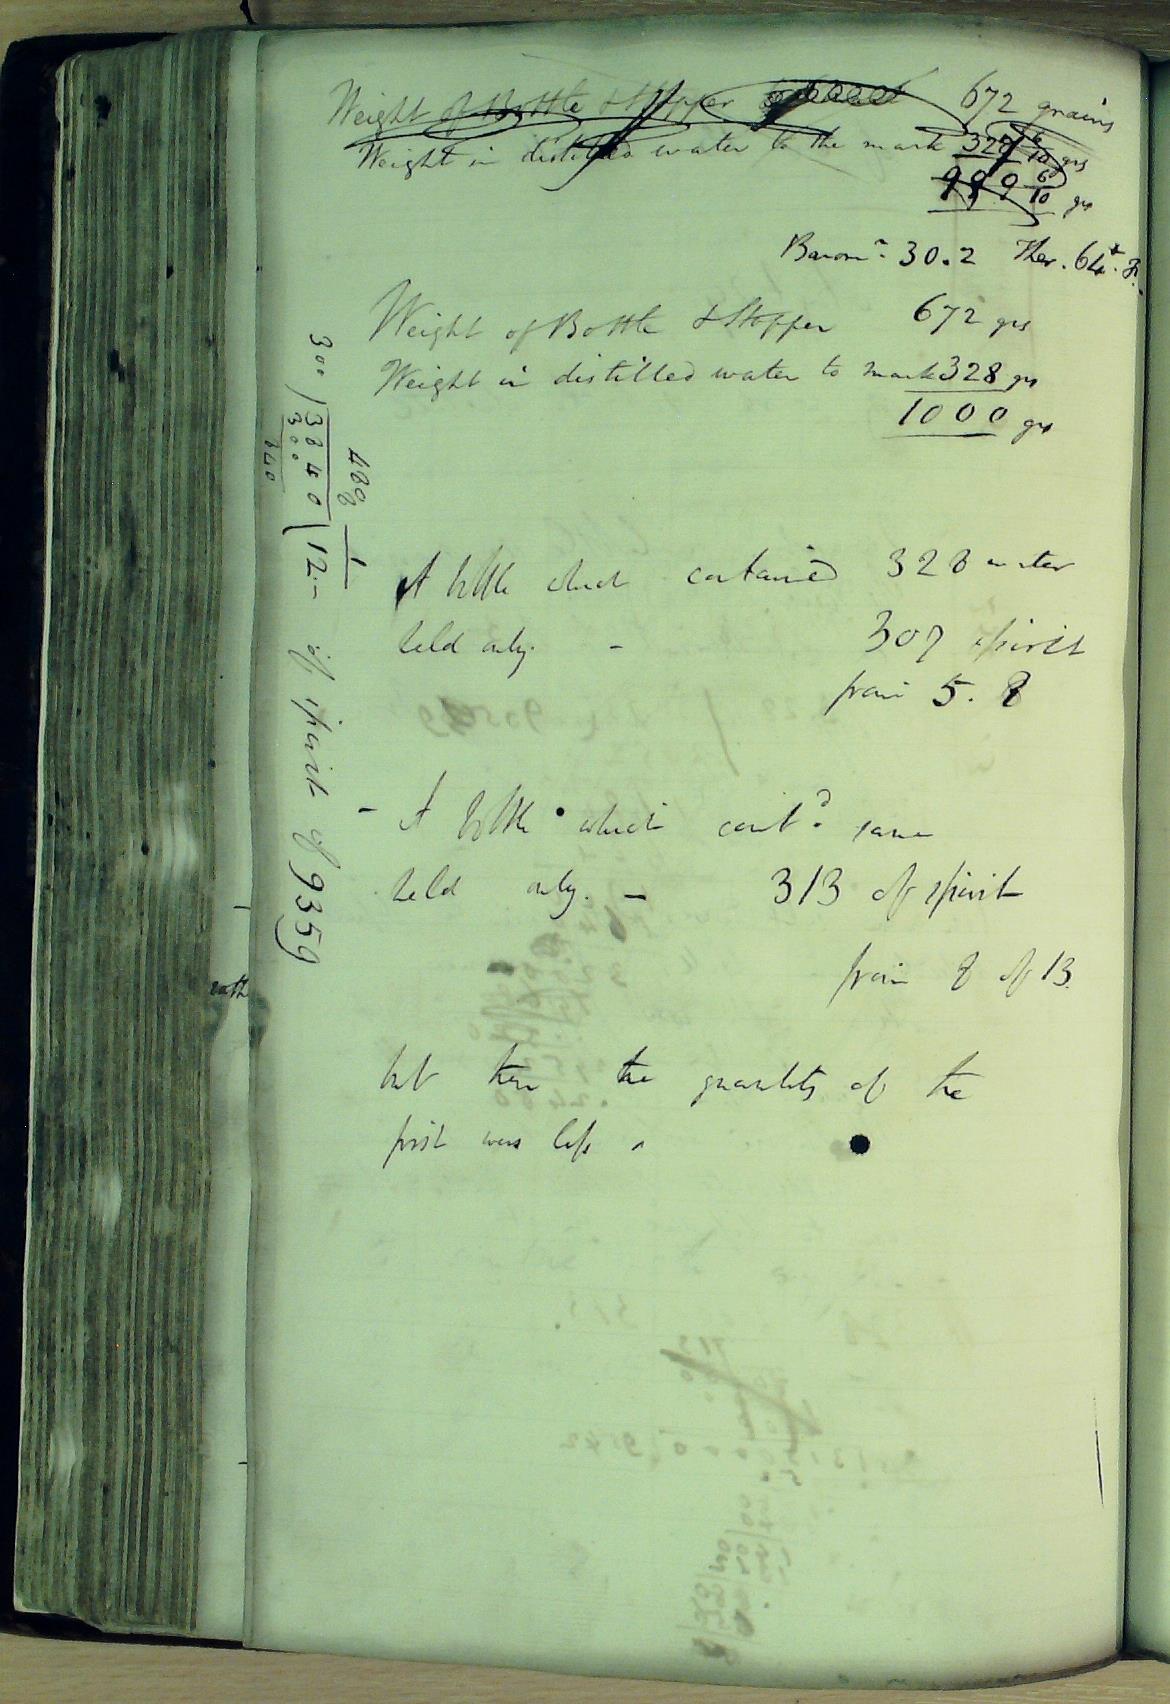 Weight of Bottle & Stopper 672 grains
Weight in distilled water to the mark 327 6/10 grs
999 6/10 grs
Barom.r 30.2 Ther. 64°. F.
Weight of Bottle & Stopper 672 grs
Weight in distilled water to mark 328 grs
1000 grs
A bottle which contained 328 water
held only. - 307 spirit
from 5. 8
- A bottle which cont.d same
held only. - 313 of spirit
from 8 of 13.
but then the quantity of the
first was less
300 ) 3840 ( 12.-
300
840
480
8
1
of spirit of 9359